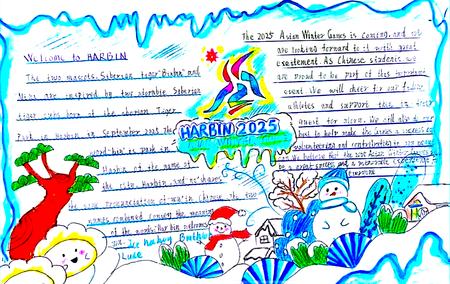 Welcome to HARBIN
The two mascots, Siberian tiger "Binbin" and
Nini are inspired by two adorable Siberian
tiger cubs born at the Siberian Tiger
Park in Harbin in September 2023. The
word "bin" is park in
Harbin of the name of
the city, Harbin and "ni" shares
the same pronunciation of "ni" in Chinese. The two
names combined convey the meaning
of the words "Harbin welcomes
you."
HARBIN 2025
The 2025 Asian Winter Games is coming, and we
are looking forward to it with great
excitement. As Chinese students, we
are proud to be part of this important
event. We will cheer for our
athletes and support them in their
quest for glory. We will also do our
best to help make the Games a success by
volunteering and contributing to
we believe that the 2025 Asian Winter Games will
be a great success and a memorable